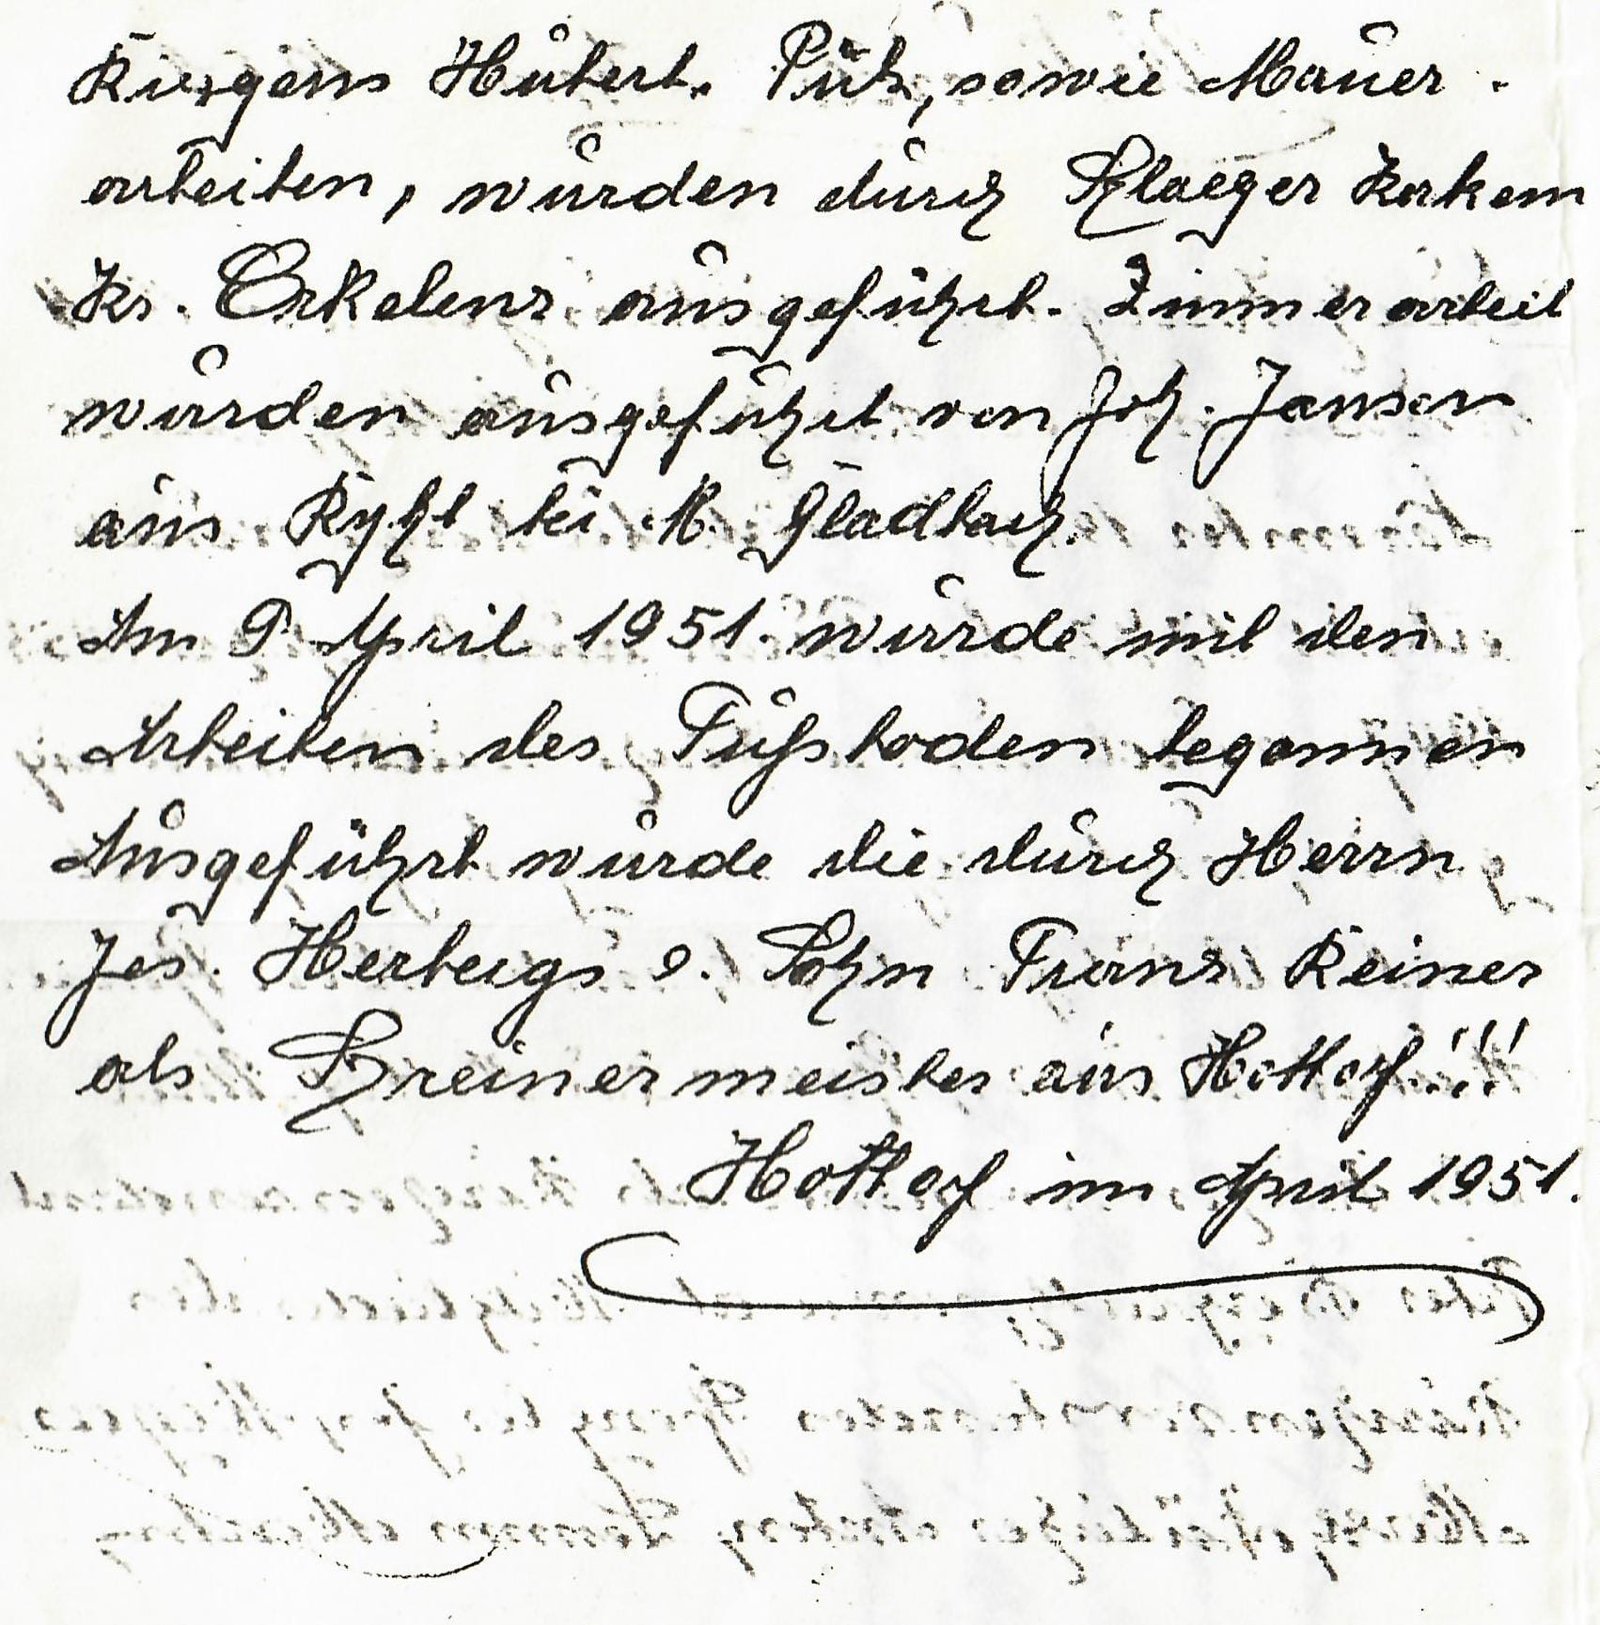 Kirsgens Hubert. Putz, sowie Mauer-
arbeiten, wurden durch Schlaeger Körrenzig
Kr. Erkelenz ausgeführt. Zimmerarbeit
wurden ausgeführt von Joh. Jansen
aus Rheydt bei M. Gladbach.
Am 9 April 1951. wurde mit den
Arbeiten des Fußboden begonnen
Ausgeführt wurde die durch Herrn
Jos. Herbergs u. Sohn Franz Reiner
als Schreinermeister aus Hottorf!!!
Hottorf im April 1951.